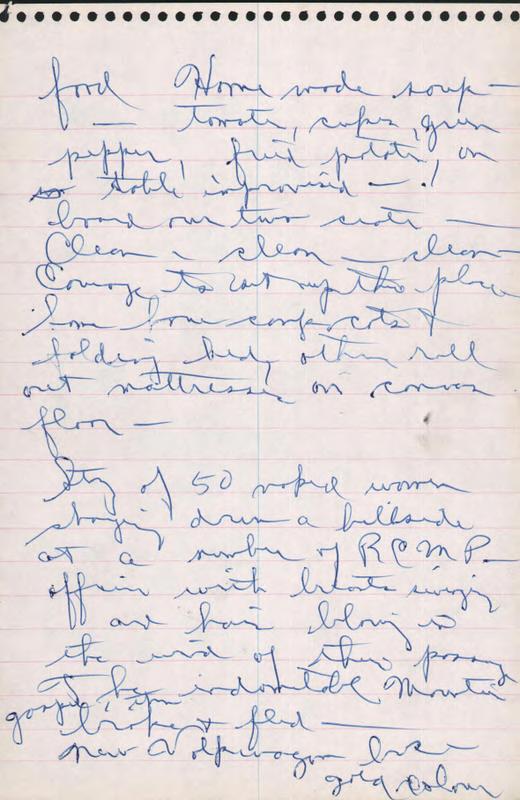 food Home made soup —
— tomato, cukes, green
pepper, fried potato, on
table improvised — !
board over two seats —
Clean — clean — clean —
Courage to set up this place
Some have camp cots &
folding beds, others roll
out mattresses on canvas
floor —
Story of 50 naked women
charging down a hillside
at a number of RCMP —
officers with breasts swinging
and hair blowing in
the wind of their passing
The indomitable Mounties
broke & fled —
new Volkswagon bus
gold colour